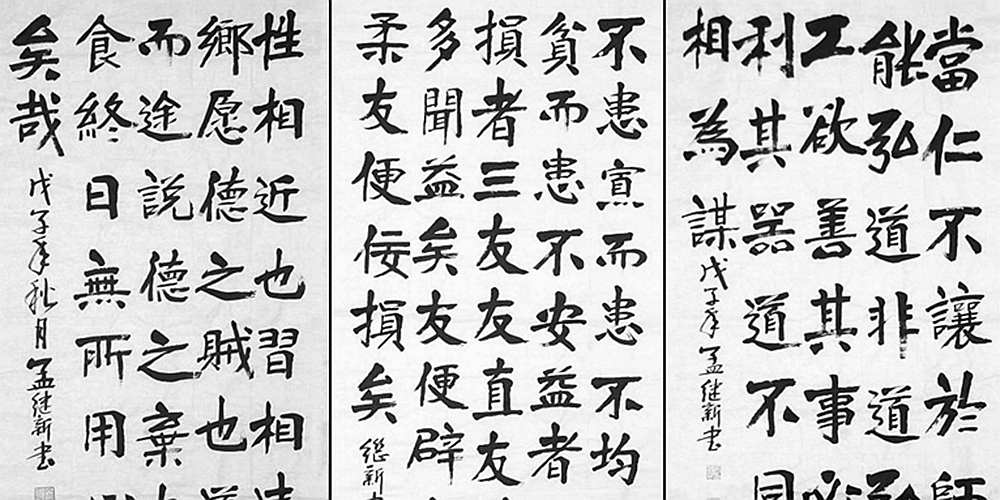 當仁不讓於師
能弘道非道弘
工欲善其事必
利其器道不同
相為謀
戊子年孟继新书
不患寡而患不均
貧而患不安益者
損者三友友直友
多聞益矣友便辟
柔友便佞損矣
継新
性相近也習相遠
鄉愿德之賊也道
而途説德之棄
食終日無所用
矣哉
戊子年秋月孟继新书